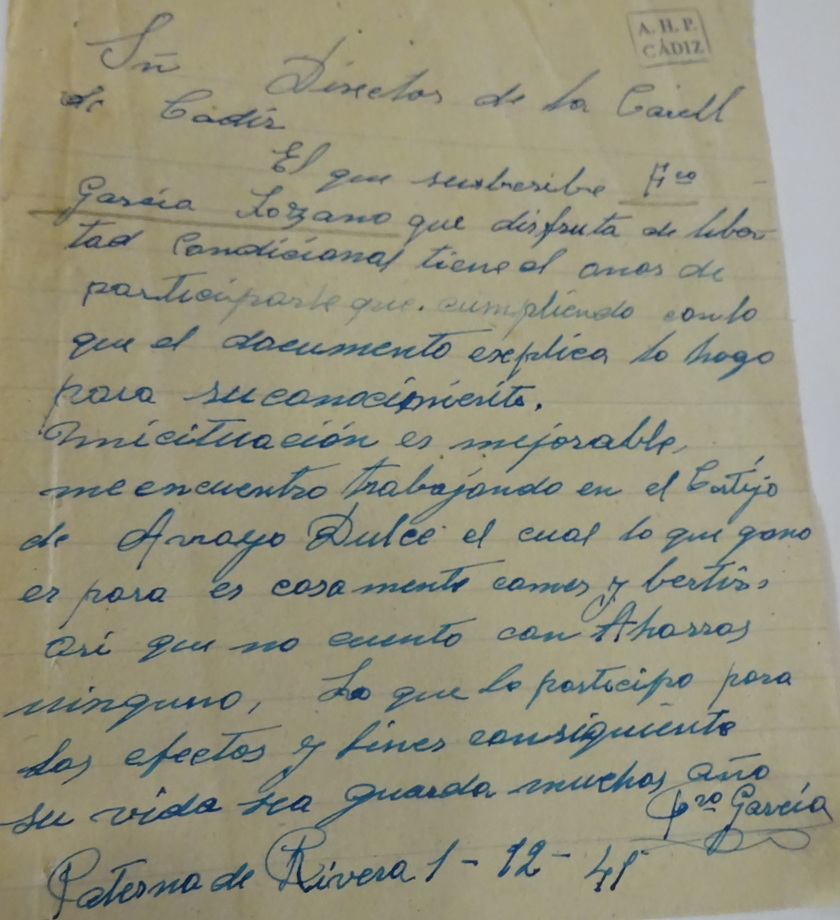 A. H. P.
CÁDIZ
Sñ Director de la Carcell
de Cadiz
El que suxbcribe Frco
García Lozzano que disfruta de liber
tad Condicional tiene el onos de
participarle que. cumpliendo con lo
que el documento esplica lo hago
para su conocimiento.
mi cituación es mejorable,
me encuentro trabajando en el Cortijo
de Arroyo Dulce el cual lo que gano
es para es casamente comer y bertir,
así que no cuento con Ahorros
ninguno, Lo que lo participo para
los efectos y fines consiguiente
su vida sea guarda muchos año
Frco García
Paterna de Rivera 1-12-45